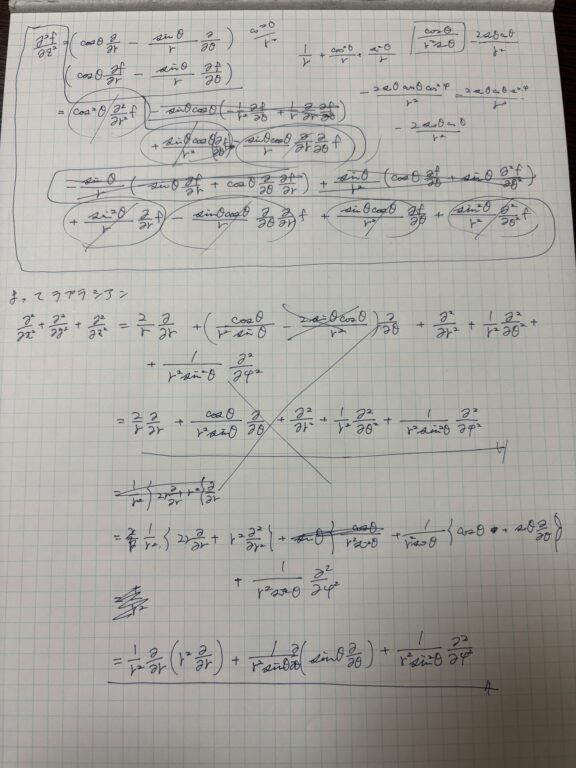 ∂²f/∂z² = (cosθ ∂/∂r − sinθ/r ∂/∂θ) cos²θ/r²
1/r + cos²θ/r + sin²θ/r
cosθ/r²sinθ
2sinθcosθ/r²
(cosθ ∂f/∂r − sinθ/r ∂f/∂θ)
− 2sinθcosθcos²φ/r² − 2sinθcosθsin²φ/r²
= cos²θ ∂²/∂r² f − sinθcosθ (1/r² ∂f/∂θ + 1/r ∂/∂r ∂f/∂θ)
− 2sinθcosθ/r²
+ sinθcosθ/r² ∂f/∂θ − sinθcosθ/r ∂/∂r ∂/∂θ f
− sinθ/r (− sinθ ∂f/∂r + cosθ ∂/∂θ ∂f/∂r) + sinθ/r² (cosθ ∂f/∂θ + sinθ ∂²f/∂θ²)
+ sin²θ/r ∂/∂r f − sinθcosθ/r ∂/∂θ ∂/∂r f + sinθcosθ/r² ∂f/∂θ + sin²θ/r² ∂²/∂θ² f
よってラプラシアン
∂²/∂x² + ∂²/∂y² + ∂²/∂z² = 2/r ∂/∂r + (cosθ/r²sinθ − 2sinθcosθ/r²) ∂/∂θ + ∂²/∂r² + 1/r² ∂²/∂θ² +
+ 1/r²sin²θ ∂²/∂φ²
= 2/r ∂/∂r + cosθ/r²sinθ ∂/∂θ + ∂²/∂r² + 1/r² ∂²/∂θ² + 1/r²sin²θ ∂²/∂φ²
= 1/r² {2r ∂/∂r + r² ∂/∂r
= 1/r² {2r ∂/∂r + r² ∂²/∂r²} + sinθ { cosθ/r²sin²θ + 1/r²sinθ {cosθ + sinθ ∂/∂θ}
+ 1/r²sin²θ ∂²/∂φ²
= 1/r² ∂/∂r (r² ∂/∂r) + 1/r²sinθ ∂/∂θ (sinθ ∂/∂θ) + 1/r²sin²θ ∂²/∂φ²